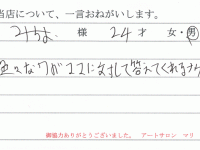 当店について、一言おねがいします。
みちよ 様 24才 女・男
色々なワガママに対して答えてくれるサ
御協力ありがとうございました。 アートサロン マリ